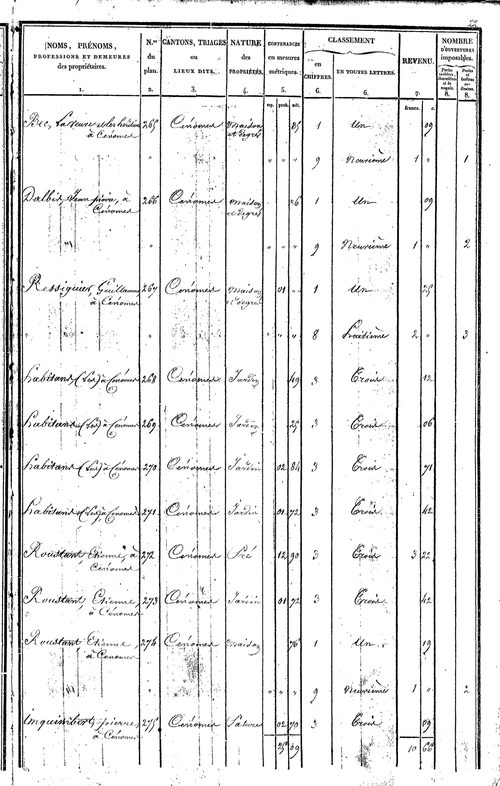 NOMS, PRÉNOMS, PROFESSIONS ET DEMEURES des propriétaires. | N.os du plan. | CANTONS, TRIAGES ou LIEUX DITS. | NATURE des PROPRIÉTÉS. | CONTENANCES en mesures métriques. | CLASSEMENT en CHIFFRES. | EN TOUTES LETTRES. | REVENU. | NOMBRE D'OUVERTURES imposables.
1. 2. 3. 4. 5. 6. 6. 7. 8. 8.
francs. c.
265 Cénomes Maison 85 1 un 09
à Cénomes et degrés
" " " " 9 Neuvième 1 " 1
Dalbis, Jean pierre, à 266 Cénomes Maison 1 un 09
Cénomes et degrés
" " " " 9 Neuvième 1 " 2
Ressiguier, Guillaume 267 Cénomes Maison 01 " 1 un 25
à Cénomes et degrés
" " " 8 huitième 2 " 3
habitans (les) à Cénomes 268 Cénomes Jardin 49 3 Trois 12
habitans (les) à Cénomes 269 Cénomes Jardin 25 3 Trois 06
habitans (les) à Cénomes 270 Cénomes Jardin 02 84 3 Trois 71
habitans (les) à Cénomes 271 Cénomes Jardin 01 72 3 Trois 42
Roustant, Etienne, à 272 Cénomes Pré 12 90 3 Trois 3 22
Cénomes
Roustant, Etienne, 273 Cénomes Jardin 01 72 3 Trois 42
à Cénomes
Roustant, Etienne, 274 Cénomes Maison 76 1 un 19
à Cénomes
" " " " 9 Neuvième 1 " 2
Inquimbert, pierre, 275 Cénomes Pature 02 70 3 Trois 09
à Cénomes
25 09 10 66